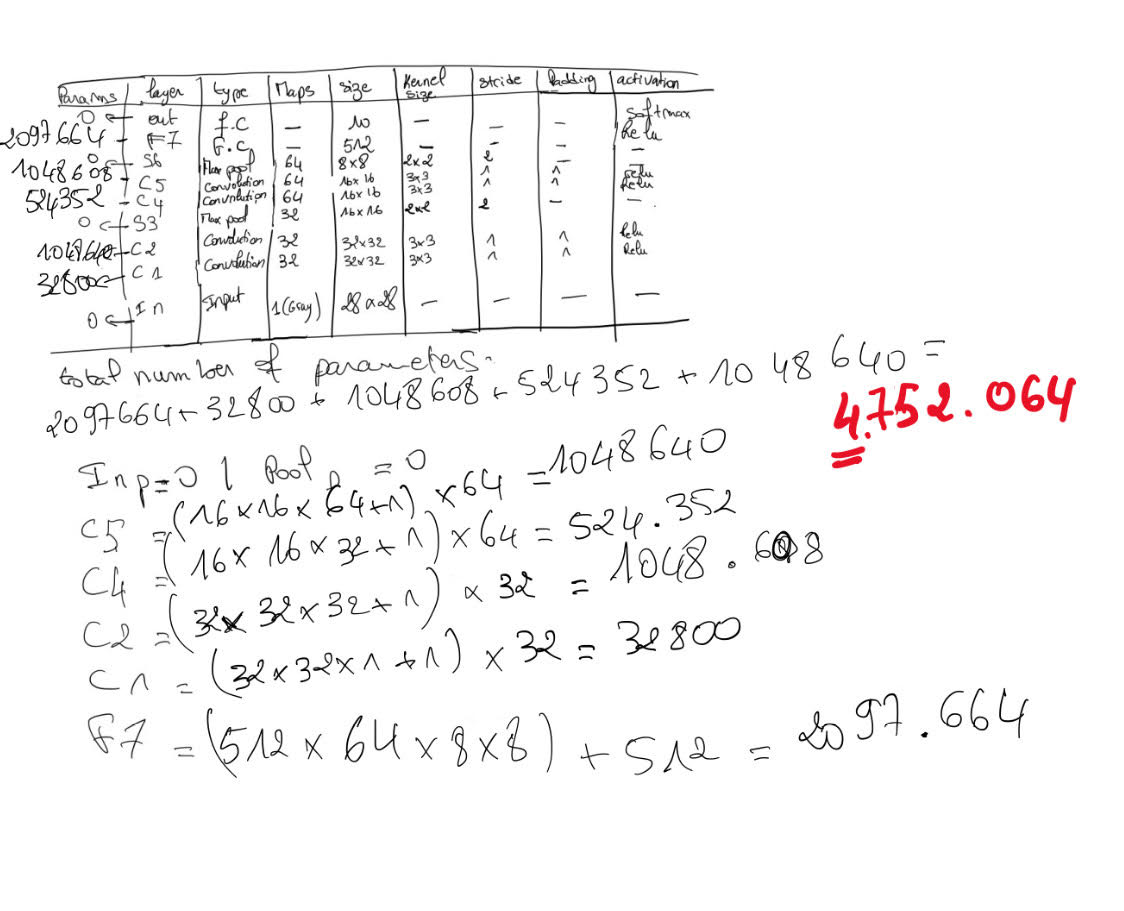 Params layer type Maps size Kernel size stride Padding activation
0 ← out f.C — 10 — — — softmax
2097664 - F7 F.C — 512 — — — Relu
0 ← S6 Max pool 64 8x8 2x2 2 — —
1048608 - C5 Convolution 64 16x16 3x3 1 1 relu
524352 - C4 Convolution 64 16x16 3x3 1 1 Relu
0 ← S3 Max pool 32 16x16 2x2 2 — —
1048640 - C2 Convolution 32 32x32 3x3 1 1 relu
32800 - C1 Convolution 32 32x32 3x3 1 1 Relu
0 ← In Input 1(Gray) 28x28 — — — —
total number of parameters:
2097664 + 32800 + 1048608 + 524352 + 1048640 =
4.752.064
Inp=0 | Pool = 0
C5 = (16x16x64+1) x64 = 1048640
C4 = (16x16x32+1) x64 = 524.352
C2 = (32x32x32+1) x 32 = 1048.608
C1 = (32x32x1+1) x 32 = 32800
F7 = (512x64x8x8) + 512 = 2097.664